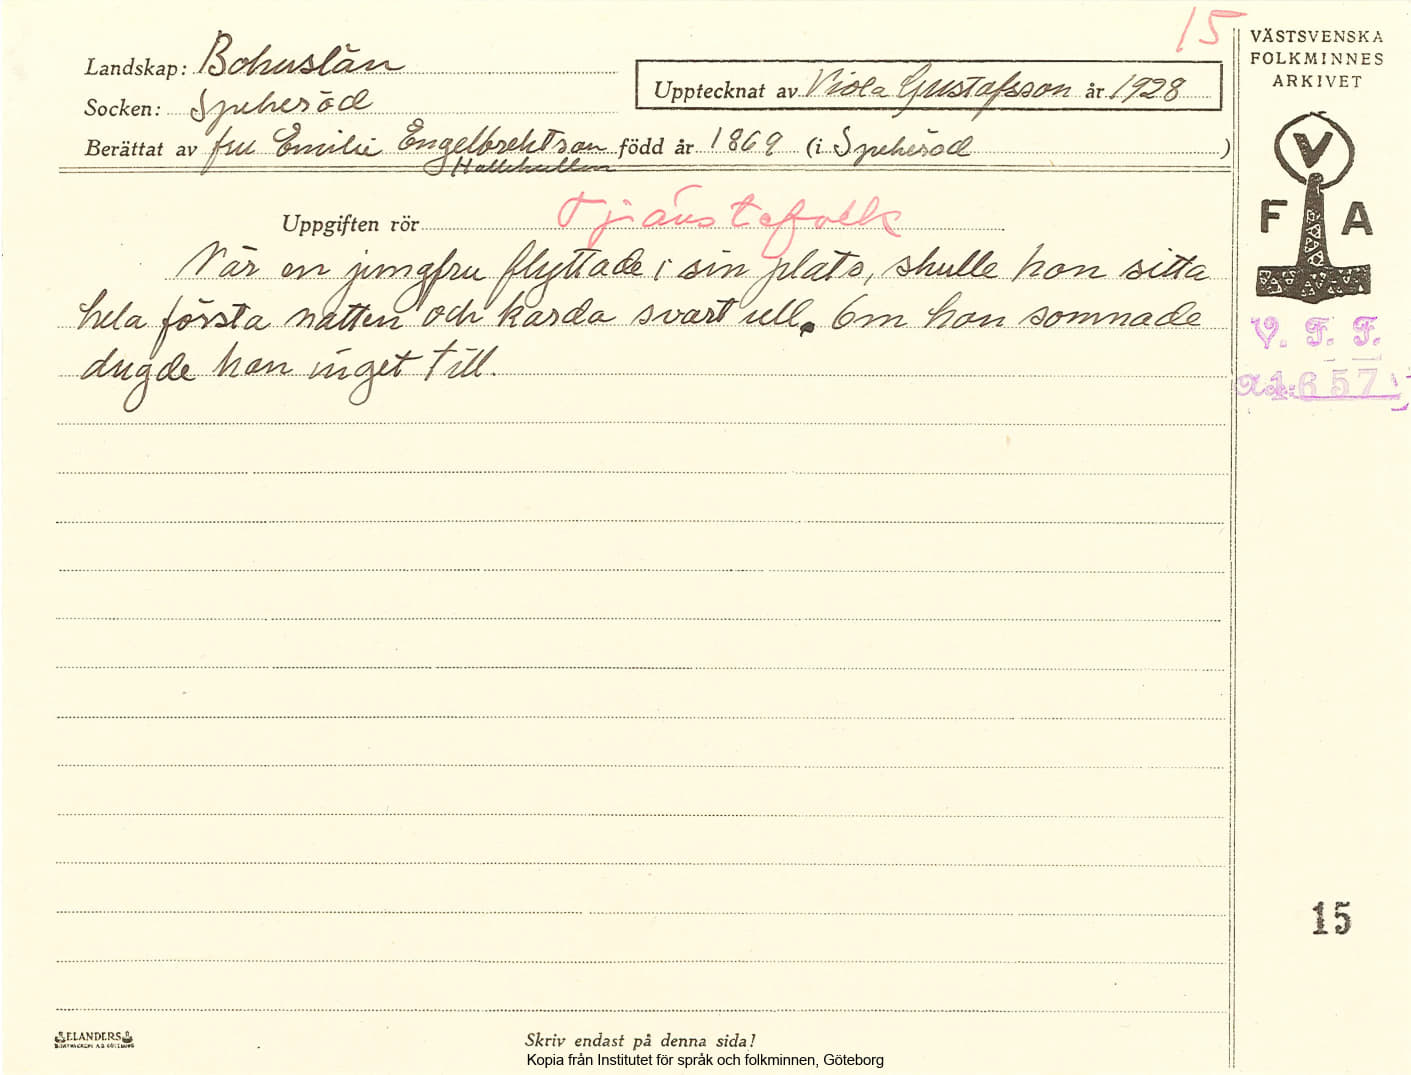 15
Landskap: Bohuslän
Socken: Spekeröd
Upptecknat av Viola Gustafsson år 1928
Berättat av fru Emilie Engelbrektson född år 1869 (i Spekeröd )
Hällekullen
Uppgiften rör Tjänstefolk
När en jungfru flyttade i sin plats, skulle hon sitta
hela första natten och karda svart ull. Om hon somnade
dugde hon inget till.
VÄSTSVENSKA
FOLKMINNES
ARKIVET
V
F A
V. F. F.
1657
15
ELANDERS
Skriv endast på denna sida!
Kopia från Institutet för språk och folkminnen, Göteborg